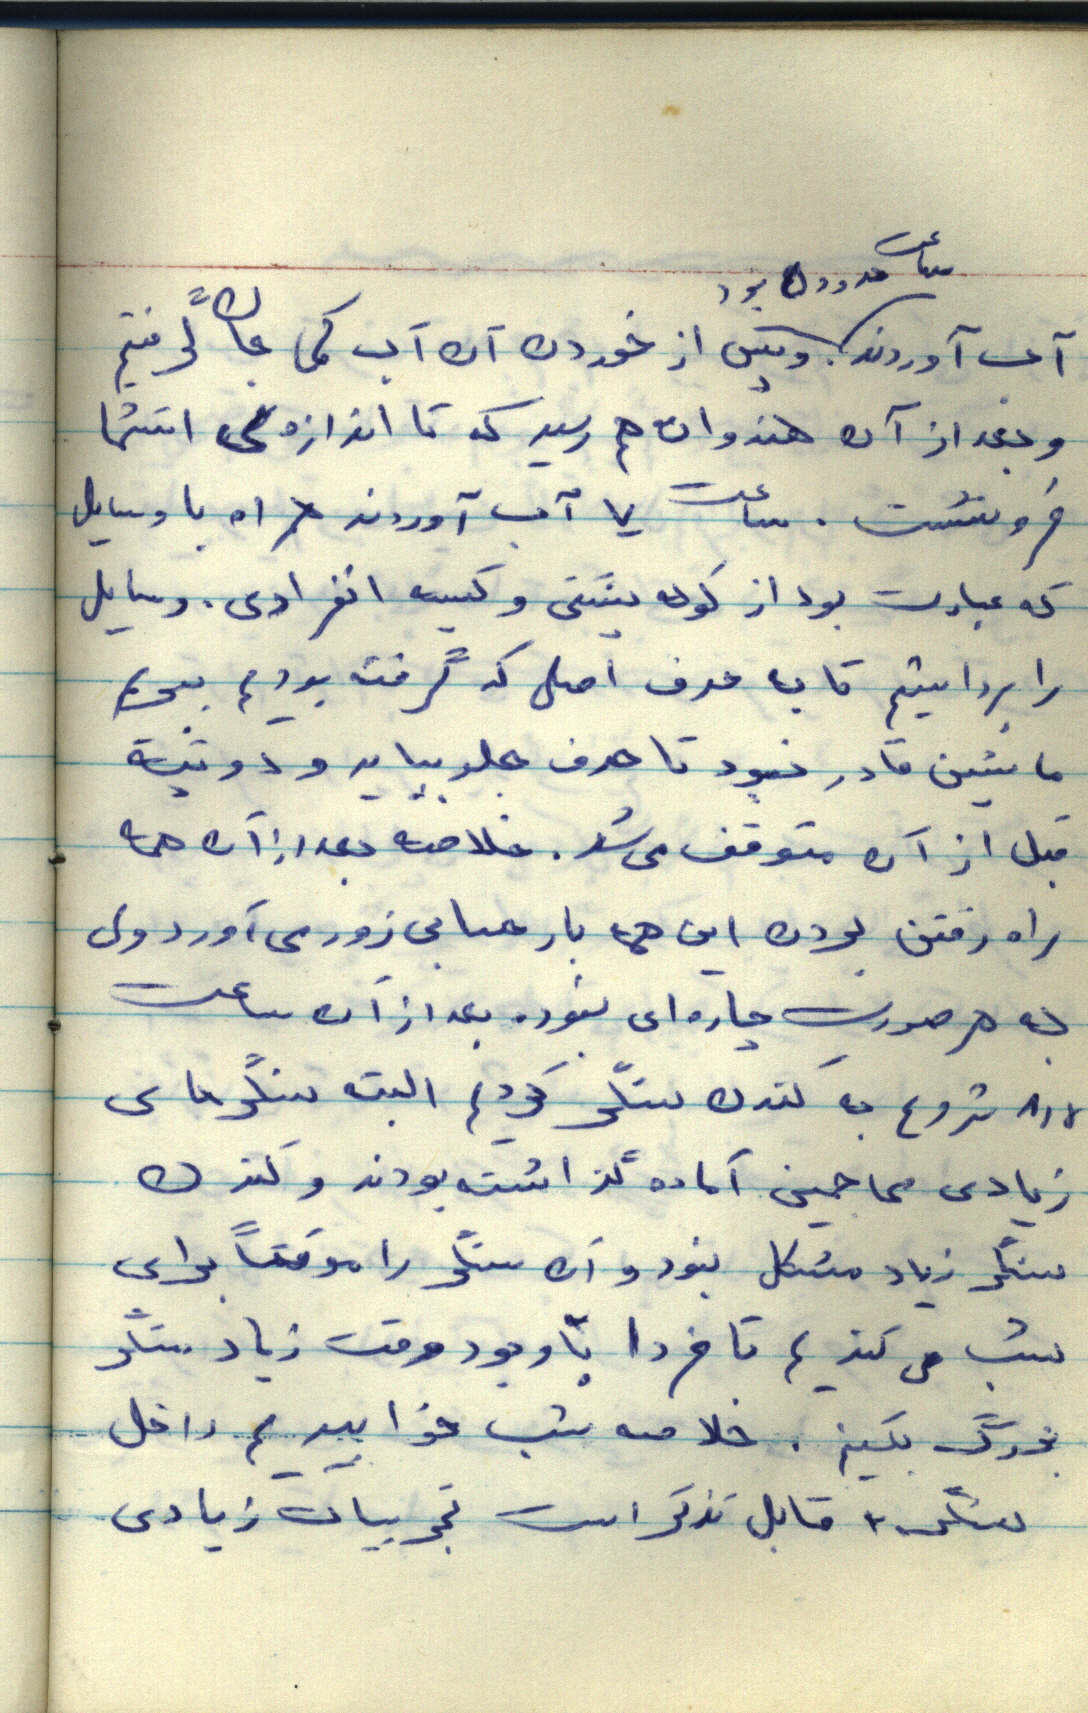 ساعت
حدود ۵ بود
آب آوردند. و پس از خوردن آن آب کمی جان گرفتیم
و بعد از آن هندوانه هم رسید که تا اندازه‌ای
فرونشست. ساعت ۷ آب آوردند همراه با وسایل
که عبارت بود از کوله پشتی و کیسه انفرادی. وسایل
را برداشتیم تا به هدف اصلی که گرفته بودیم ببریم
ماشین قادر نبود تا هدف جلو بیاید و دو تپه
قبل از آن متوقف می‌شد. خلاصه بعد از آن همه
راه رفتن بردن این همه بار حسابی زور می‌آورد ولی
به هر صورت چاره‌ای نبود. بعد از آن ساعت
شروع به کندن سنگر کردیم البته سنگرهای
زیادی آماده گذاشته بودند و کندن
سنگر زیاد مشکل نبود و آن سنگر را موقتاً برای
شب می‌کندیم تا فردا با وجود وقت زیاد سنگر
بزرگ بکنیم. خلاصه شب خوابیدیم داخل
سنگر. قابل تذکر است تجربیات زیادی